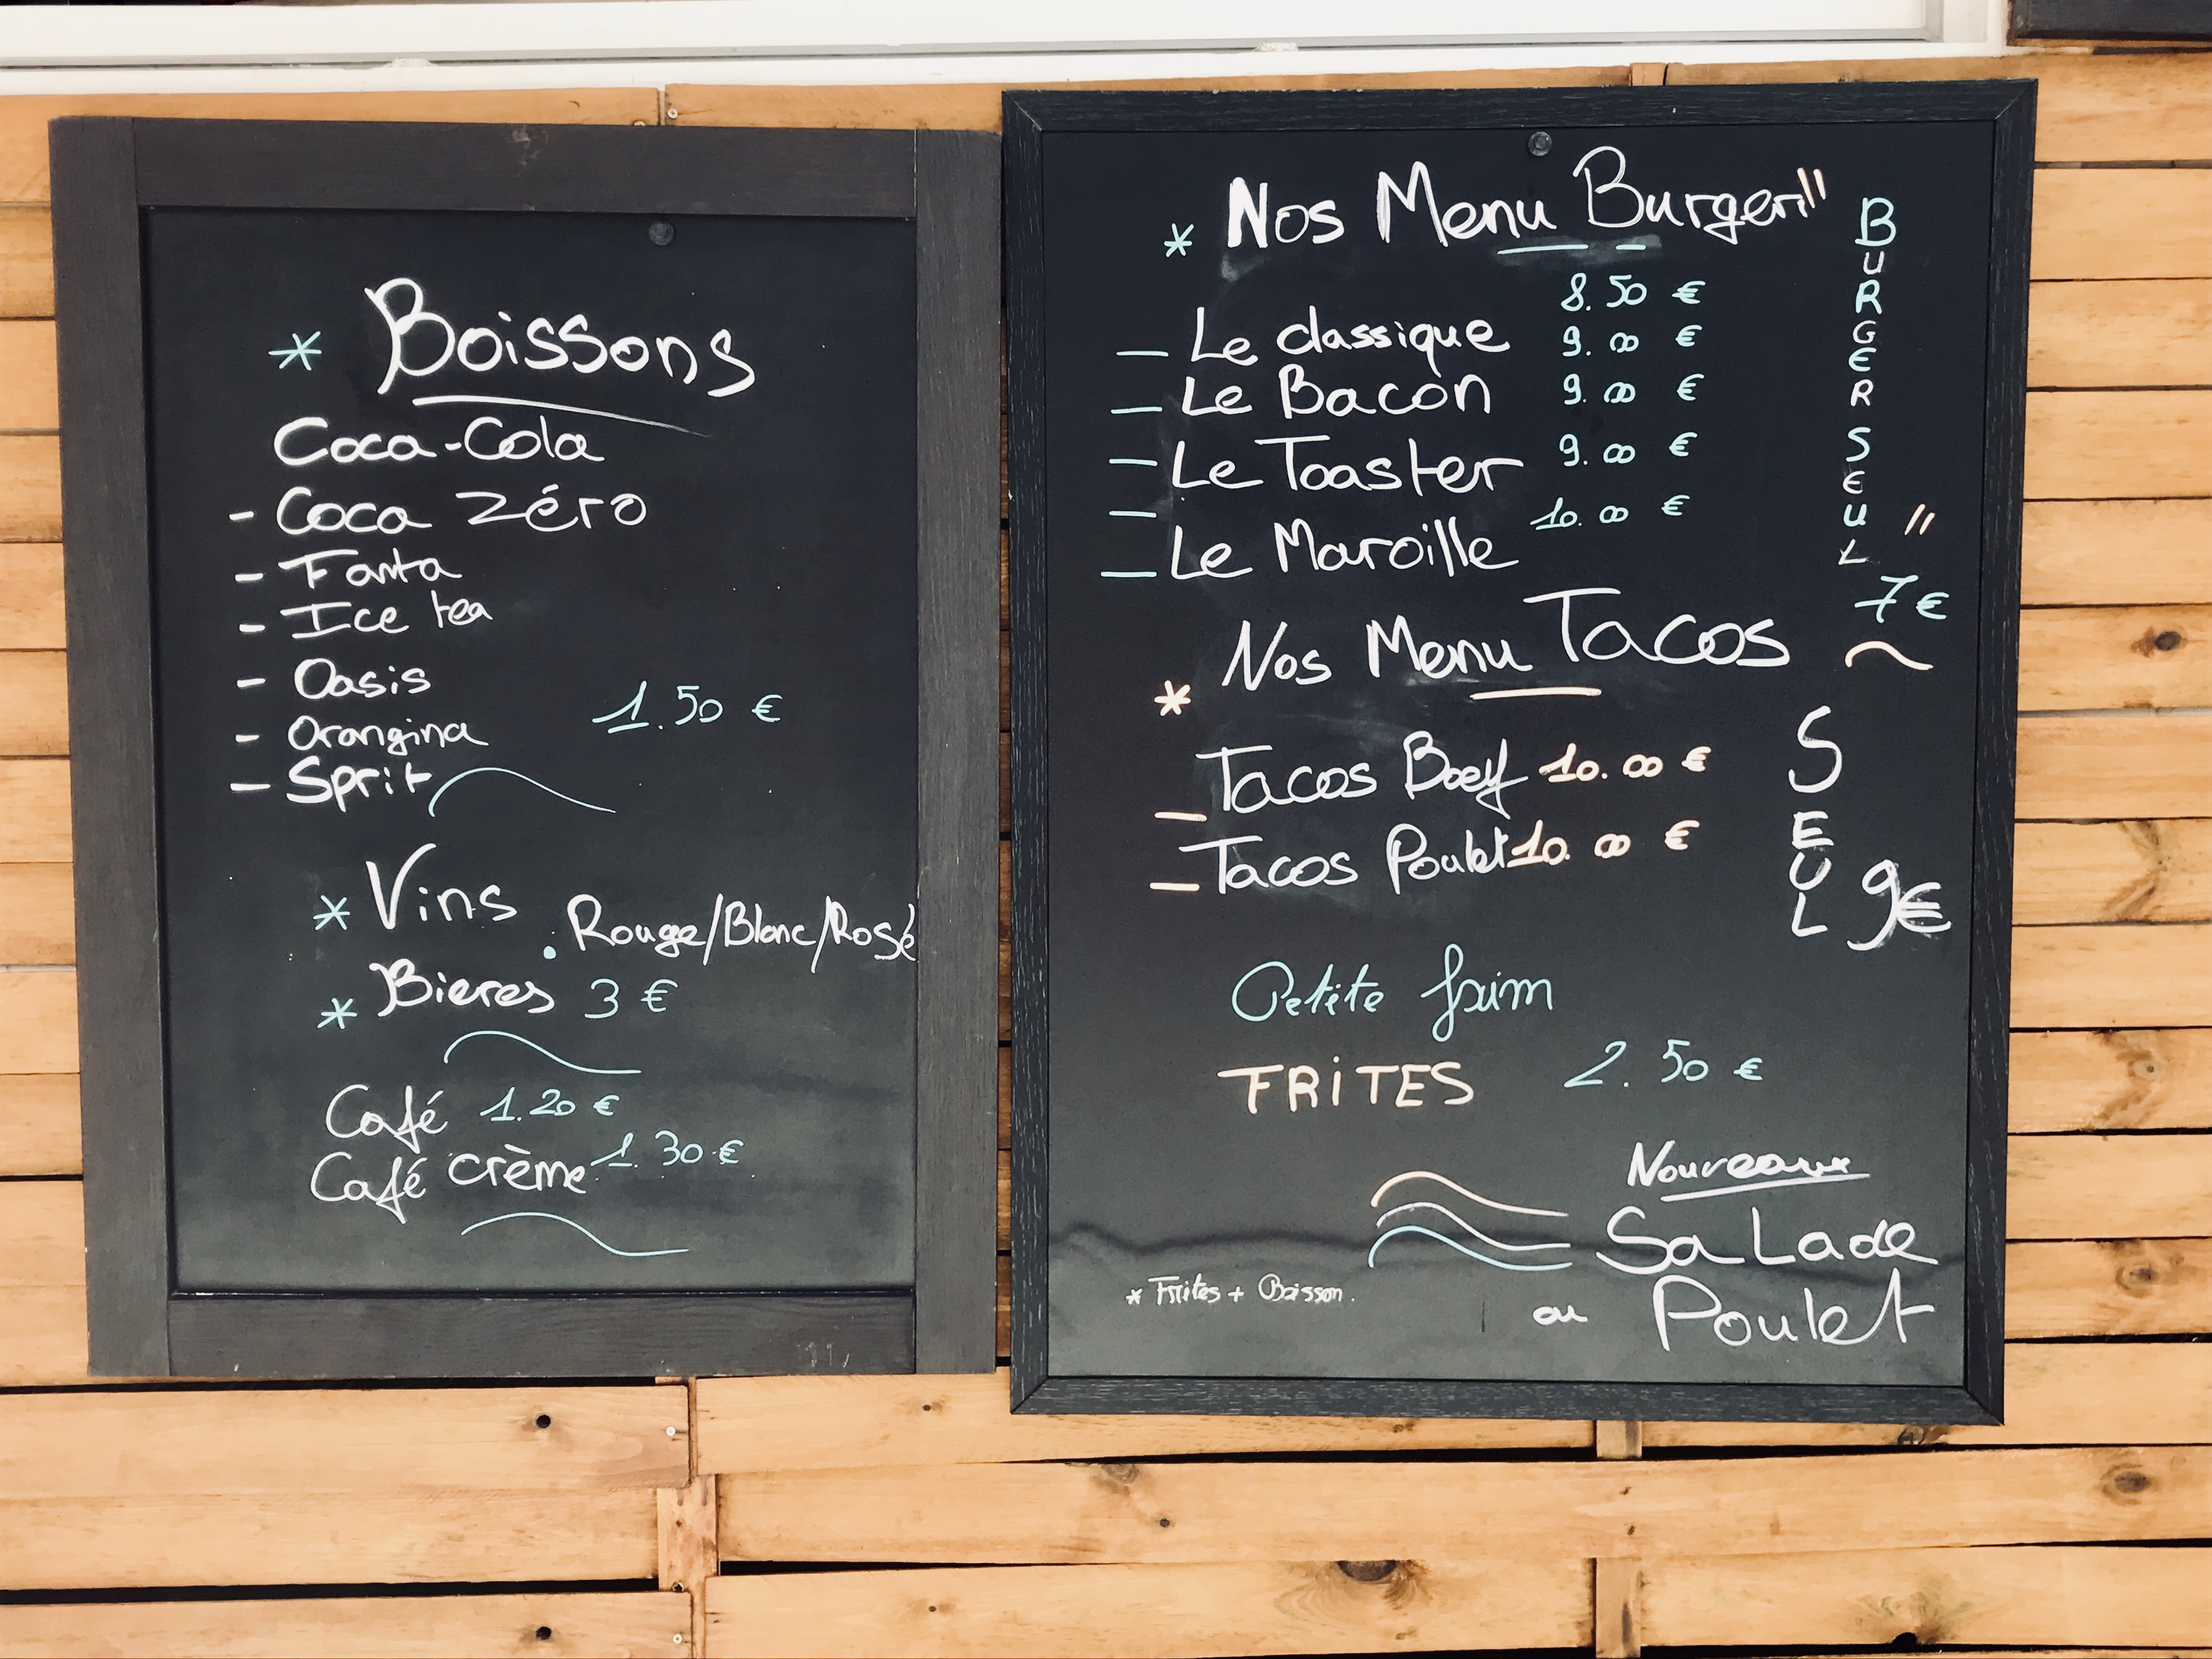 * Boissons
Coca-Cola
- Coca zéro
- Fanta
- Ice tea
- Oasis
- Orangina
- Sprit
1.50 €
* Vins
. Rouge/Blanc/Rosé
* Bieres 3 €
Café 1.20 €
Café crème 1.30 €
* Nos Menu Burger"
8.50 €
– Le classique 9.00 €
– Le Bacon 9.00 €
– Le Toaster 9.00 €
– Le Maroille 10.00 €
BURGER SEUL "
7 €
* Nos Menu Tacos
– Tacos Boeuf 10.00 €
– Tacos Poulet 10.00 €
SEUL 9€
Petite faim
FRITES 2.50 €
Nouveaux
SaLade
ou Poulet
* Frites + Boisson.